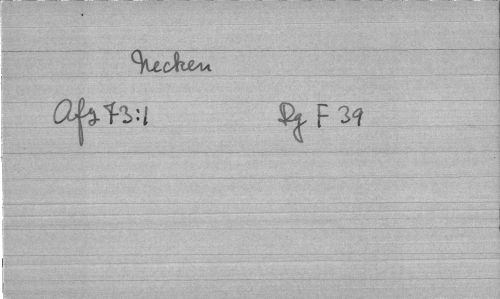 Necken
Afz 73:1 Rg F 39